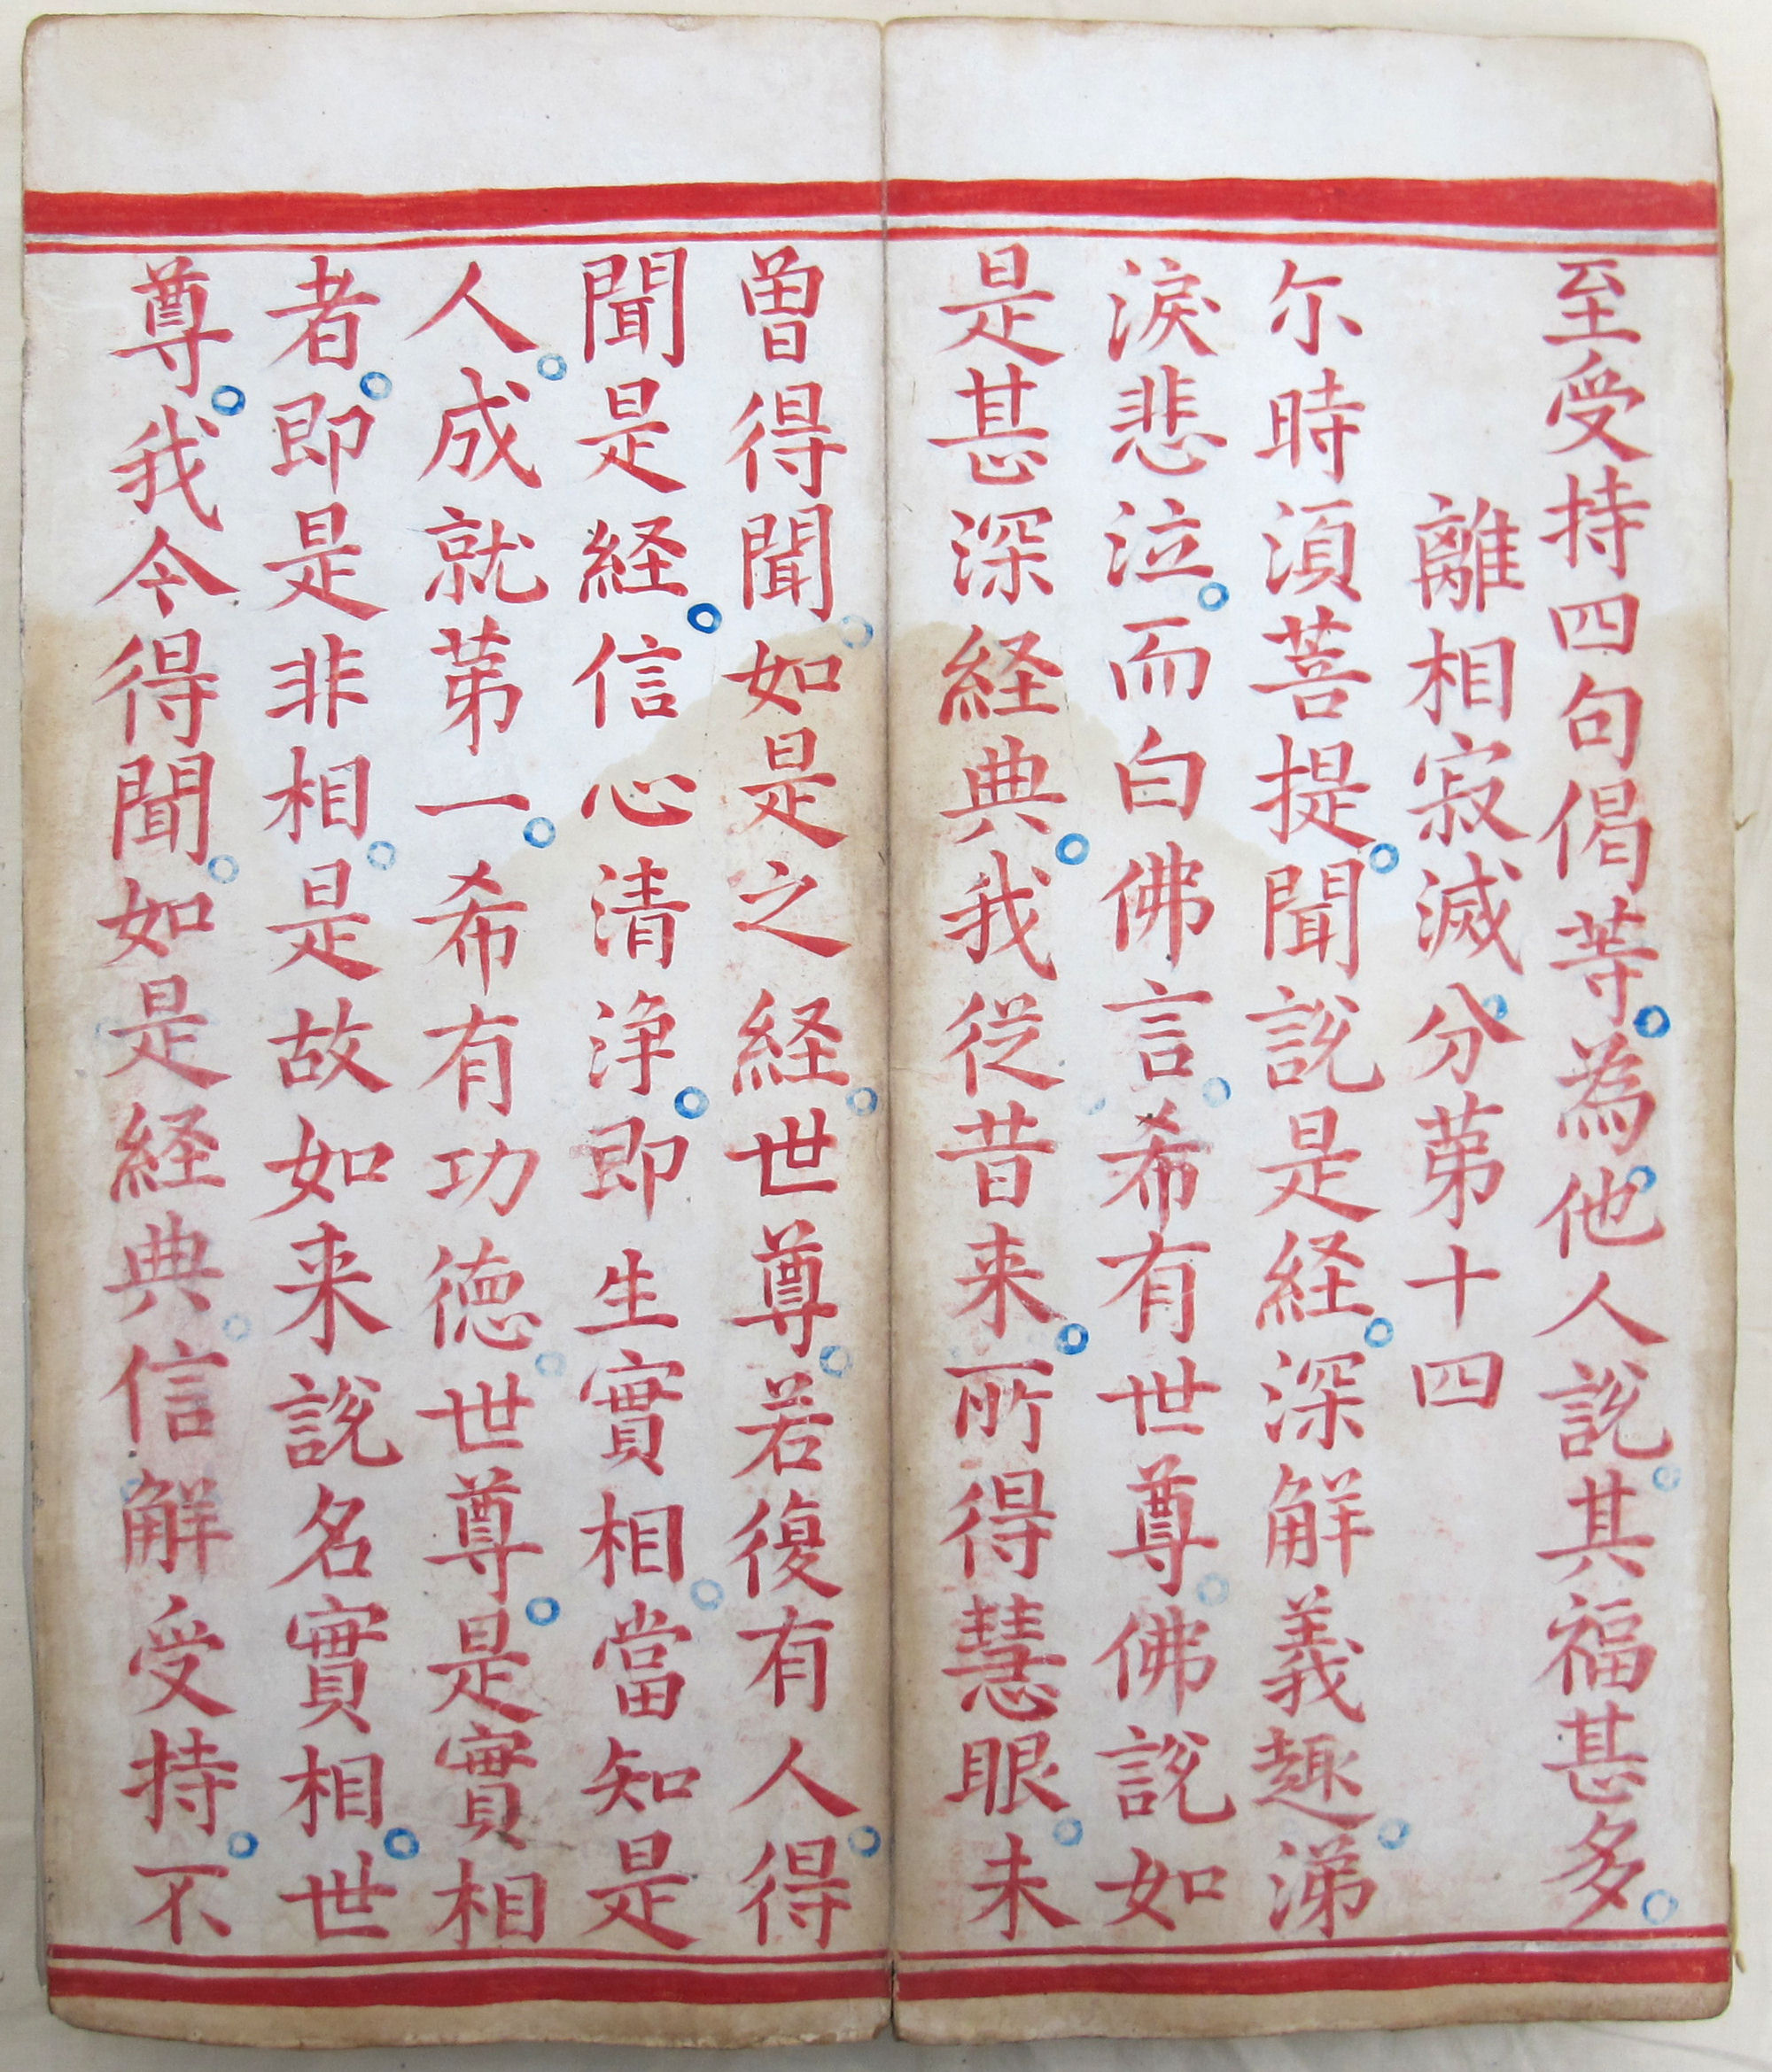 至受持四句偈等為他人說其福甚多
離相寂滅分第十四
尓時湏菩提聞說是経深解義趣涕
淚悲泣而白佛言希有世尊佛說如
是甚深経典我從昔来所得慧眼未
曾得聞如是之経世尊若復有人得
聞是経信心清淨即生實相當知是
人成就第一希有功德世尊是實相
者即是非相是故如来說名實相世
尊我今得聞如是経典信解受持不